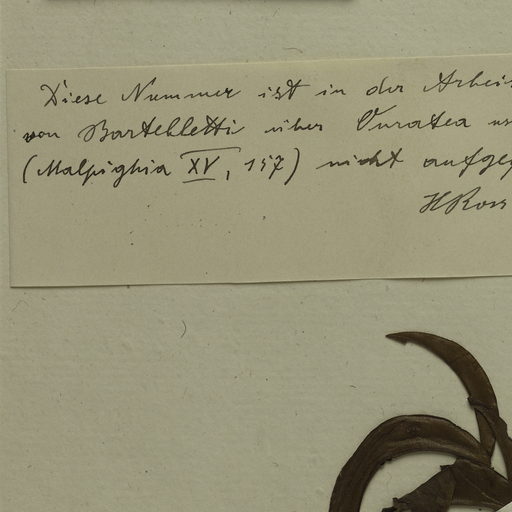 Diese Nummer ist in der Arbei
von Bartelletti über Ouratea u
(Malpighia XV, 157) nicht aufge
H Ross